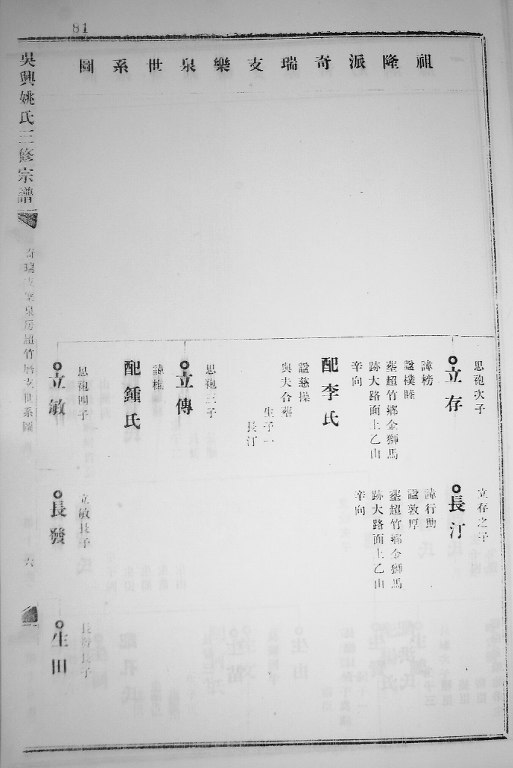 81
祖隆派奇瑞支樂泉世系圖
吳興姚氏三修宗譜
思菢次子
立存
諱榜
諡樸睦
塟超竹鄉金獅馬
跡大路面上乙山
辛向
配李氏
諡慈操
與夫合塟
生子一
長汀
思菢三子
立傳
諱樵
配鍾氏
思菢四子
立敏
立存之子
長汀
諱行勳
諡敦厚
塟超竹鄉金獅馬
跡大路面上乙山
辛向
立敏長子
長發
長發長子
生田
六